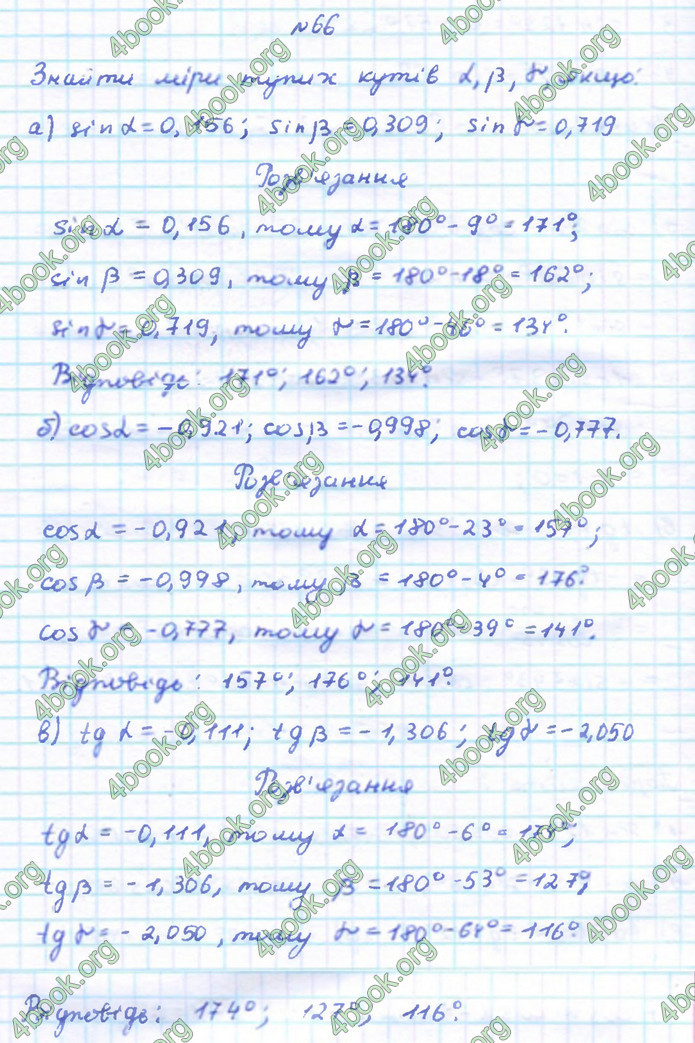 №66
Знайти міри тупих кутів α, β, γ, якщо:
а) sin α = 0,156; sin β = 0,309; sin γ = 0,719
Розв'язання
sin α = 0,156, тому α = 180° - 9° = 171°;
sin β = 0,309, тому β = 180° - 18° = 162°;
sin γ = 0,719, тому γ = 180° - 46° = 134°.
Відповідь: 171°; 162°; 134°.
б) cos α = -0,921; cos β = -0,998; cos γ = -0,777.
Розв'язання
cos α = -0,921, тому α = 180° - 23° = 157°;
cos β = -0,998, тому β = 180° - 4° = 176°.
cos γ = -0,777, тому γ = 180° - 39° = 141°.
Відповідь: 157°; 176°; 141°.
в) tg α = -0,111; tg β = -1,306; tg γ = -2,050
Розв'язання
tg α = -0,111, тому α = 180° - 6° = 174°;
tg β = -1,306, тому β = 180° - 53° = 127°;
tg γ = -2,050, тому γ = 180° - 64° = 116°.
Відповідь: 174°; 127°; 116°.
4book.org